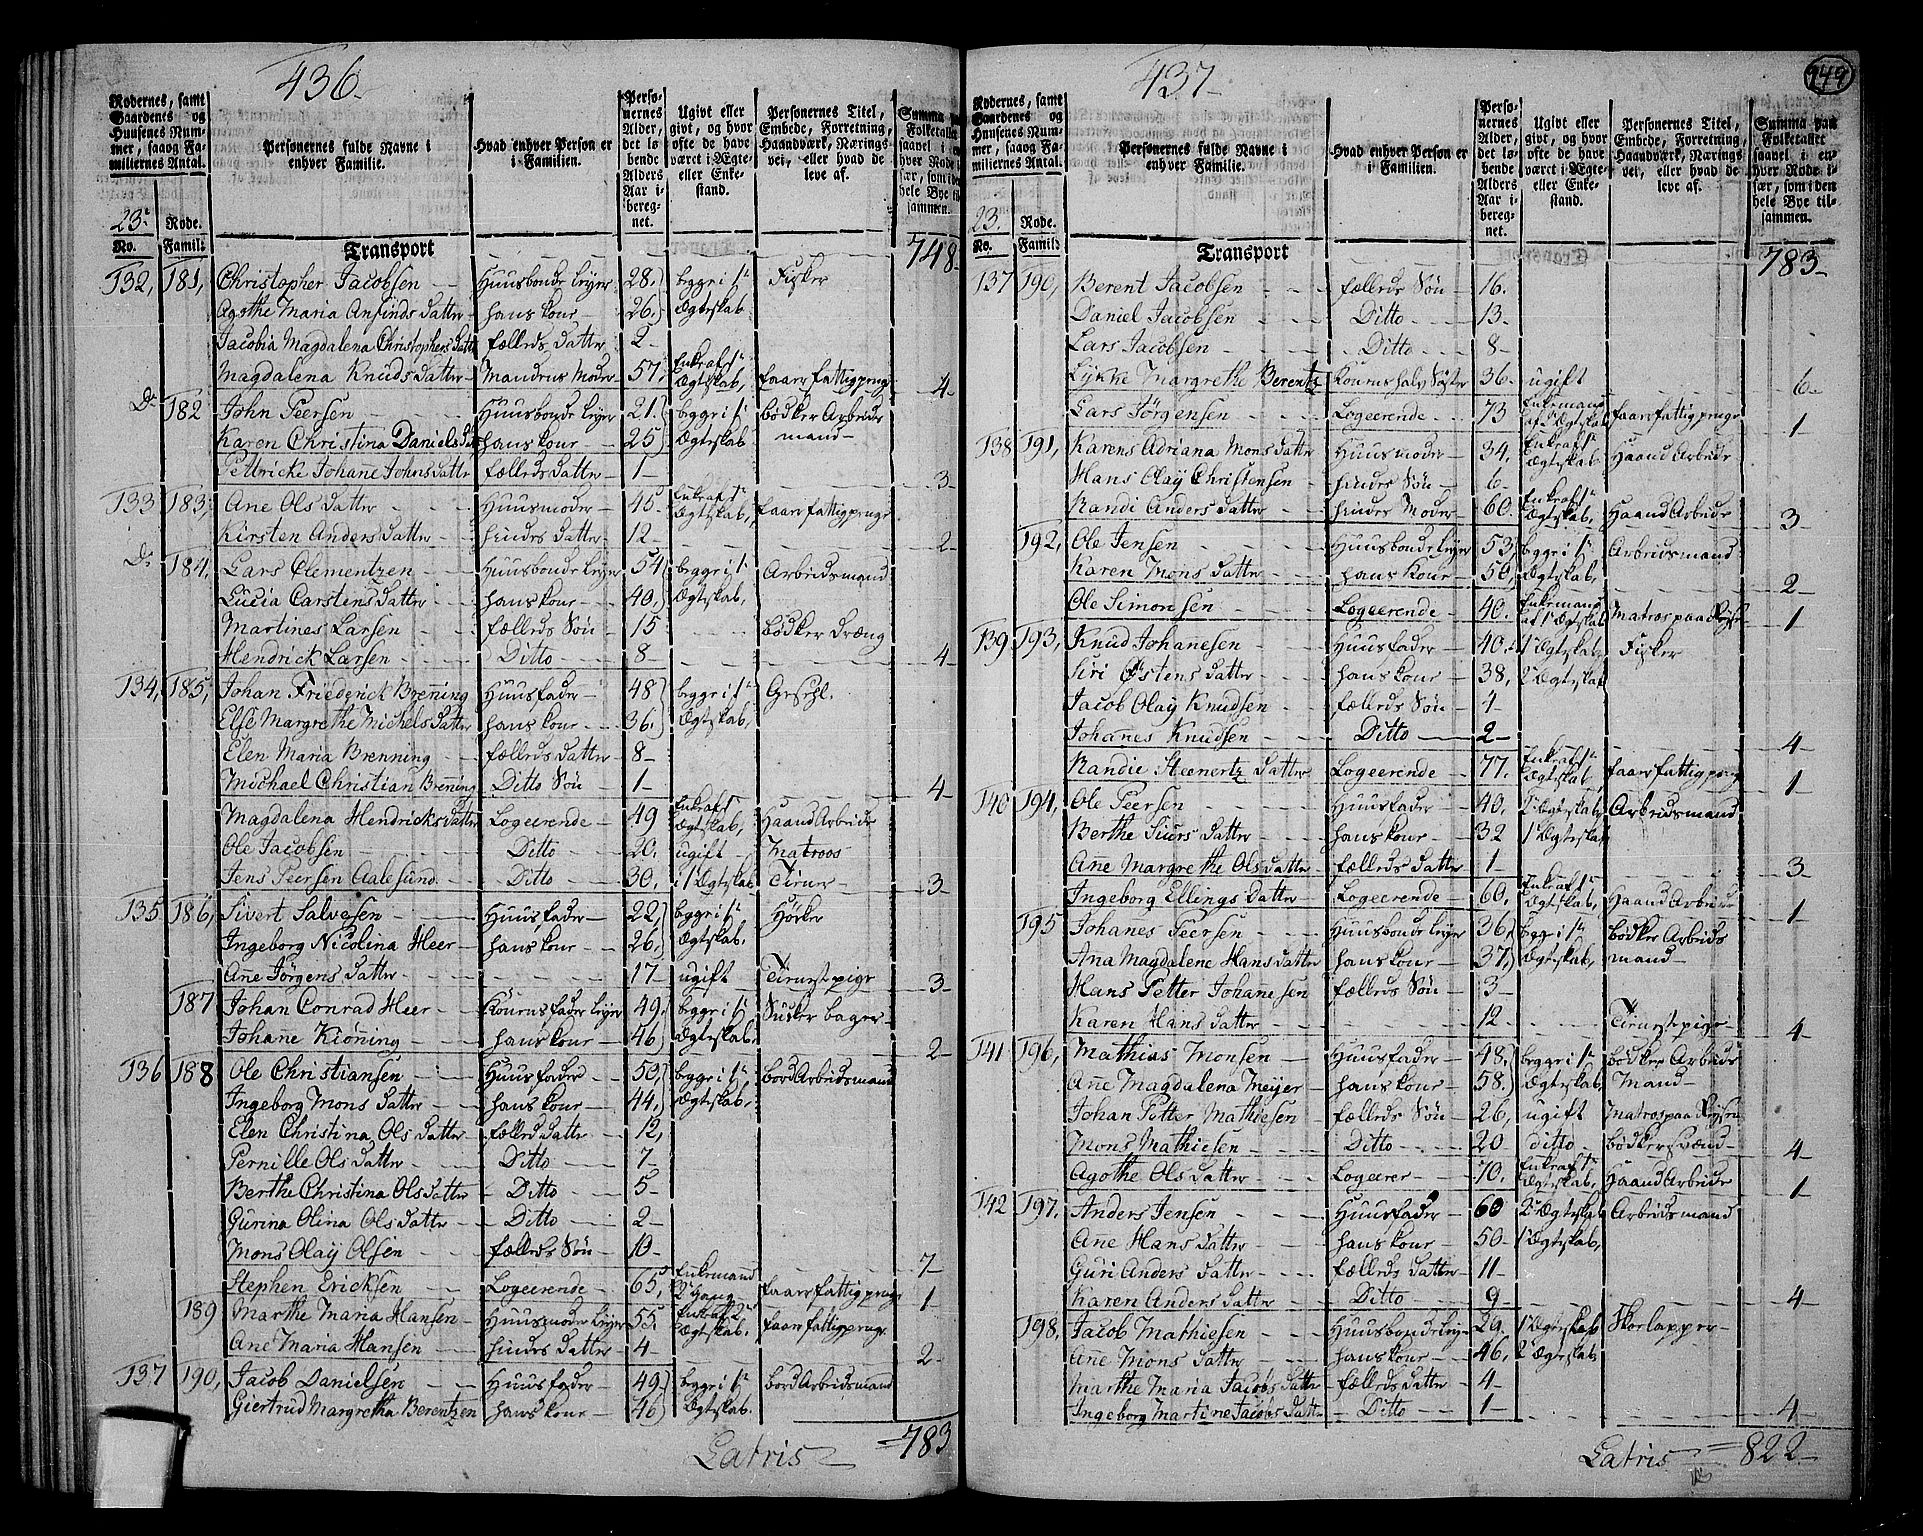 436
Rodernes, samt Gaardenes og Huusenes Nummer, saaog Familiernes Antal.
Personernes fulde Navne i enhver Familie.
Hvad enhver Person er i Familien.
Personernes Alder, det løbende Alders Aar iberegnet.
Ugivt eller givt, og hvor ofte de have været i Ægte- eller Enkestand.
Personernes Titel, Embede, Forretning, Haandværk, Næringsvei, eller hvad de leve af.
Summa paa Folketallet saavel i enhver Rode især, som i den hele Bye tilsammen.
23. Rode.
No. Famil:
Transport 748
132, 181, Christopher Jacobsen Huusbonde leyer 28. begge i 1te Fisker
Agothe Maria Anfinds datter hans kone 26. Ægteskab
Jacobia Magdalena Christophers datt fælleds datter 2
Magdalena Knuds datter Mandens Moder 57. Enke af 1te Ægteskab, faaer fattigpenge 4
Do 182 John Peersen Huusbonde leyer 21. begge i 1te bødker Arbeids
Karen Christina Daniels dat hans kone 25 Ægteskab mand
Pettricke Johane Johns datter fælleds datter 1 3
133 183, Ane Ols datter Huusmoder 45. Enke af 1te Ægteskab, faaer fattigpenge
Kirsten Anders datter hendes datter 12 2
Do 184, Lars Clementzen Huusbonde leyer 54 begge i 1te Arbeidsmand
Lucia Carstens datter hans kone 40. Ægteskab,
Martines Larsen fælleds Søn 15 bødker dræng
Hendrick Larsen Ditto 8 4
134, 185, Johan Friederick Brening Huusfader 48 begge i 1te Gesehl.
Else Margrethe Michels datter hans kone 36. Ægteskab,
Elen Maria Brenning fælleds datter 8
Michael Christian Brening Ditto Søn 1 4
Magdalena Hendricks datter Logeerende 49 Enke af 1te Ægteskab, Haand Arbeide
Ole Jacobsen Ditto 20. ugift Matroos
Jens Peersen Aalesund Ditto 30. i 1te Ægteskab Tiener 3
135 186, Sivert Salvesen Huusfader 22, begge i 1te Høker
Ingeborg Nicolina Heer hans kone 26. Ægteskab.
Ane Jørgens datter 17 ugift Tienestpige 3
187 Johan Conrad Heer Konens fader leyer 49. begge i 1te Sukker bager
Johane Kiöning hans kone 46 Ægteskab. 2
136 188 Ole Christiansen Huusfader 59, begge i 1te bord Arbeidsmand
Ingeborg Mons datter hans kone 44, Ægteskab,
Elen Christina Ols datter fælleds datter 12,
Pernille Ols datter Ditto 7
Berthe Christina Ols datter Ditto 5
Gurina Olina Ols datter Ditto 2
Mons Olaÿ Olsen fælleds Søn 10 7
Stephen Ericksen Logeerende 65, Enkemand 2 Gang faaer fattigpenge 1
189 Marthe Maria Hansen Huusmoder leyer 55. Enke af 2 Ægteskab. faaer fattigpenge
Ane Maria Hansen hendes datter 4 2
137 190, Jacob Danielsen Huusfader 49. begge i 1te bord Arbeidsmand
Giertrud Margretha Berentzen hans kone 46 Ægteskab.
Latris 783
437
749
Rodernes, samt Gaardenes og Huusenes Nummer, saaog Familiernes Antal.
Personernes fulde Navne i enhver Familie.
Hvad enhver Person er i Familien.
Personernes Alder, det løbende Alders Aar iberegnet.
Ugivt eller givt, og hvor ofte de have været i Ægte- eller Enkestand.
Personernes Titel, Embede, Forretning, Haandværk, Næringsvei, eller hvad de leve af.
Summa paa Folketallet saavel i enhver Rode især, som i den hele Bye tilsammen.
23. Rode.
No. Famil:
Transport 783
137 190, Berent Jacobsen fælleds Søn 16.
Daniel Jacobsen Ditto 13.
Lars Jacobsen Ditto 8
Lykke Margrethe Berentz Konens halv Søster 36. ugift 6
Lars Jørgensen Logeerende 73 Enkemand af 2 Ægteskab faaer fattigpenge 1
138 191, Karens Adriana Mons datter Huusmoder 34, Enke af 1te Ægteskab Haand Arbeide
Hans Olaÿ Christensen hendes Søn 6
Randi Anders datter hendes Moder 60. Enke af 1te Ægteskab, Haand Arbeide 3
192, Ole Jensen Huusbonde leyer 53, begge i 1te Arbeidsmand
Karen Mons datter hans Kone 50, Ægteskab, 2
Ole Simonsen Logeerende 40. Enkemand af 1te Ægteskab Matros paa Reyse 1
139 193, Knud Johanesen Huusfader 40. 1te Ægteskab, Fisker
Siri Østens datter hans kone 38, 2 Ægteskab
Jacob Olaÿ Knudsen fælleds Søn 4
Johanes Knudsen Ditto 2 4
Randie Steenertz datter Logeerende 77. Enke af 1te Ægteskab, faaer fattigpenge 1
140 194, Ole Peersen Huusfader 40. 2 Ægteskab Arbeidsmand
Berthe Siurs datter hans kone 32 1te Ægteskab
Ane Margrethe Ols datter fælleds datter 1 3
Ingeborg Ellings datter Logeerende 60. Enke af 1te Ægteskab, Haand Arbeide 1
195 Johanes Peersen Huusbonde leyer 36, begge i 1te bødker Arbeids
Ana Magdalene Hans datter hans kone 37, Ægteskab, mand
Hans Petter Johanesen fælleds Søn 3
Karen Hans datter 12 Tienestpige 4
141 196, Mathias Monsen Huusfader 48. begge i 1te bødker Arbeids
Ane Magdalena Meÿer hans kone 58. Ægteskab, Mand
Johan Petter Mathiesen fælleds Søn 26, ugift Matros paa Reyse
Mons Mathiesen Ditto 20 ditto bødker svend 4
Agothe Ols datter Logeerer 70, Enke af 1te Ægteskab, Haand Arbeide 1
142 197. Anders Jensen Huusfader 60 2 Ægteskab Arbeidsmand
Ane Hans datter hans kone 50 1te Ægteskab,
Guri Anders datter fælleds datter 11
Karen Anders datter Ditto 9 4
198, Jacob Mathiesen Huusbonde leyer 29. 1te Ægteskab Skoelapper
Ane Mons datter hans kone 46, 2 Ægteskab
Marthe Maria Jacobs datter fælleds datter 4
Ingeborg Martine Jacobs datter Ditto 1 4
Latris 822